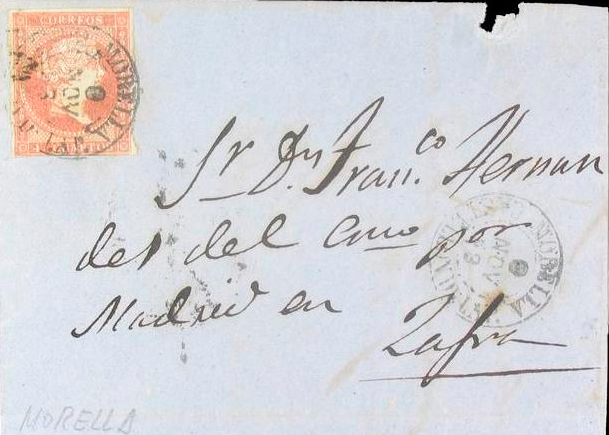 CORREOS
MORELLA
NOV
CUARTOS
Sr Dn Franco Hernan
des del Cmo por
Madrid en
Zafra
MORELLA
NOV
MORELLA